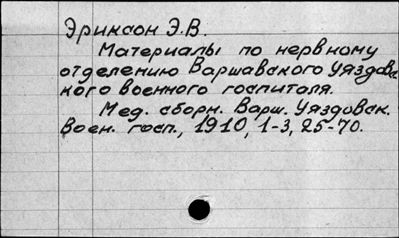 Эриксон Э.В.
Материалы по нервному
отделению Варшавского Уяздовс
кого военного госпиталя.
Мед. сборн. Варш. Уяздовск.
воен. госп., 1910, 1-3, 25-70.